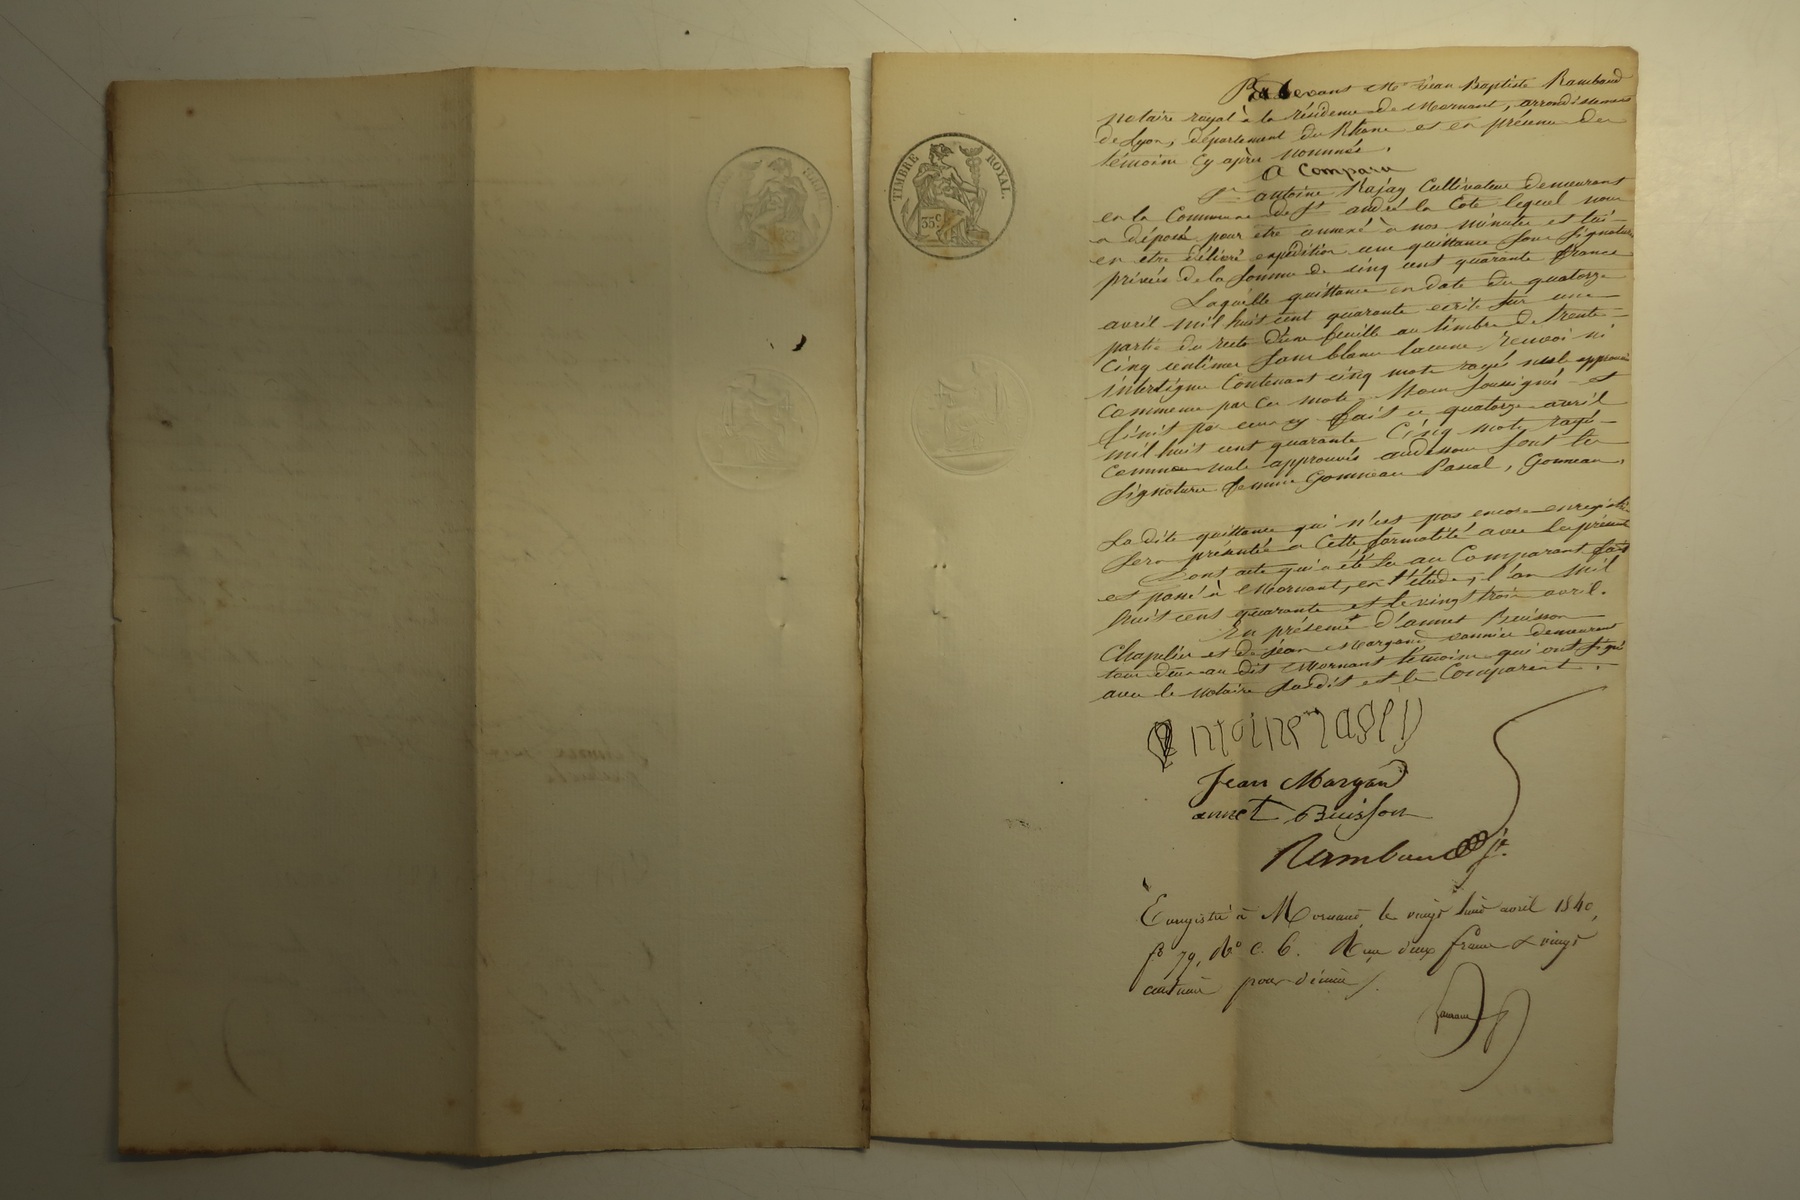 TIMBRE ROYAL
35 c
Par devant Me Jean Baptiste Rambaud
notaire royal à la résidence de Mornant, arrondissement
de Lyon, département du Rhône et en présence des
témoins cy après nommés.
A Comparu
Sr antoine Cultivateur demeurant
en la Commune de St andré la Cote lequel nous
a déposé pour etre annexé à nos minutes et lui
en etre délivré expédition une quittance sous signature
privée de la somme de cinq cent quarante francs
Laquelle quittance en date du quatorze
avril mil huit cent quarante écrite sur une
partie du recto d'une feuille au timbre de trente-
Cinq centimes sans blanc lacune, renvoi ni
interligne Contenant cinq mots rayés nuls approuvés
Commence par Ces mots. Nous soussignés et
finit par ceux cy fait ce quatorze avril
mil huit cent quarante Cinq mots rayés
Comme nuls approuvés audessous sont les
signatures femme Gonneau Pascal, Gonneau,
La dite quittance qui n'est pas encore enregistrée
sera présentée a Cette formalité avec les présentes
Dont acte qui a été lu au Comparant fait
et passé à Mornant, en l'étude, l'an mil
huit cent quarante et le vingt trois avril.
En présence d'annet Buisson
Chapelier et de Jean Margand vannier demeurant
tous deux au dit Mornant témoins qui ont signé
avec le notaire susdit et le Comparant.
Jean Margand
annet Buisson
Rambaud
Enregistré à Mornant le vingt avril 1840,
fo 79, Ro c. 6. Reçu deux francs & vingt
centimes pour décime